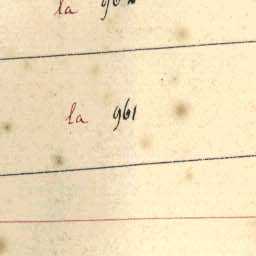 la
la 961